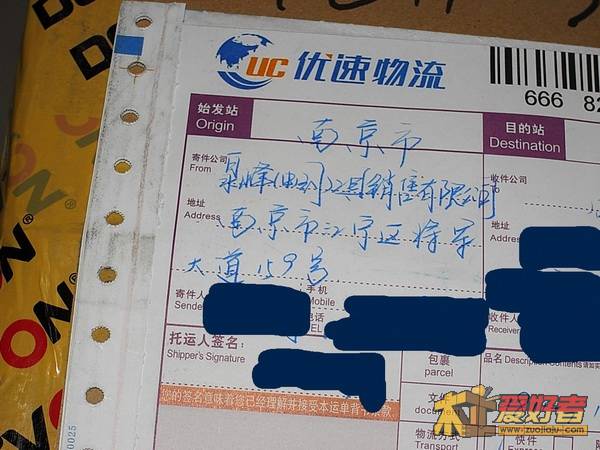 UC 优速物流
666 82
始发站
Origin
南京市
目的站
Destination
寄件公司
From
泉峰(中国)工具销售有限公司
收件公司
To
地址
Address
南京市江宁区将军
大道159号
地址
Address
寄件人
Sende
手机
Mobile
电话
TEL
收件人
Receiver
托运人签名:
Shipper's Signature
包裹
parcel
品名 Description Contents
您的签名意味着您已经理解并接受本运单背
款
文件
document
物流方式
Transport
快件
Express
0025
DO
ON
爱好者
www.zuojiaju.com